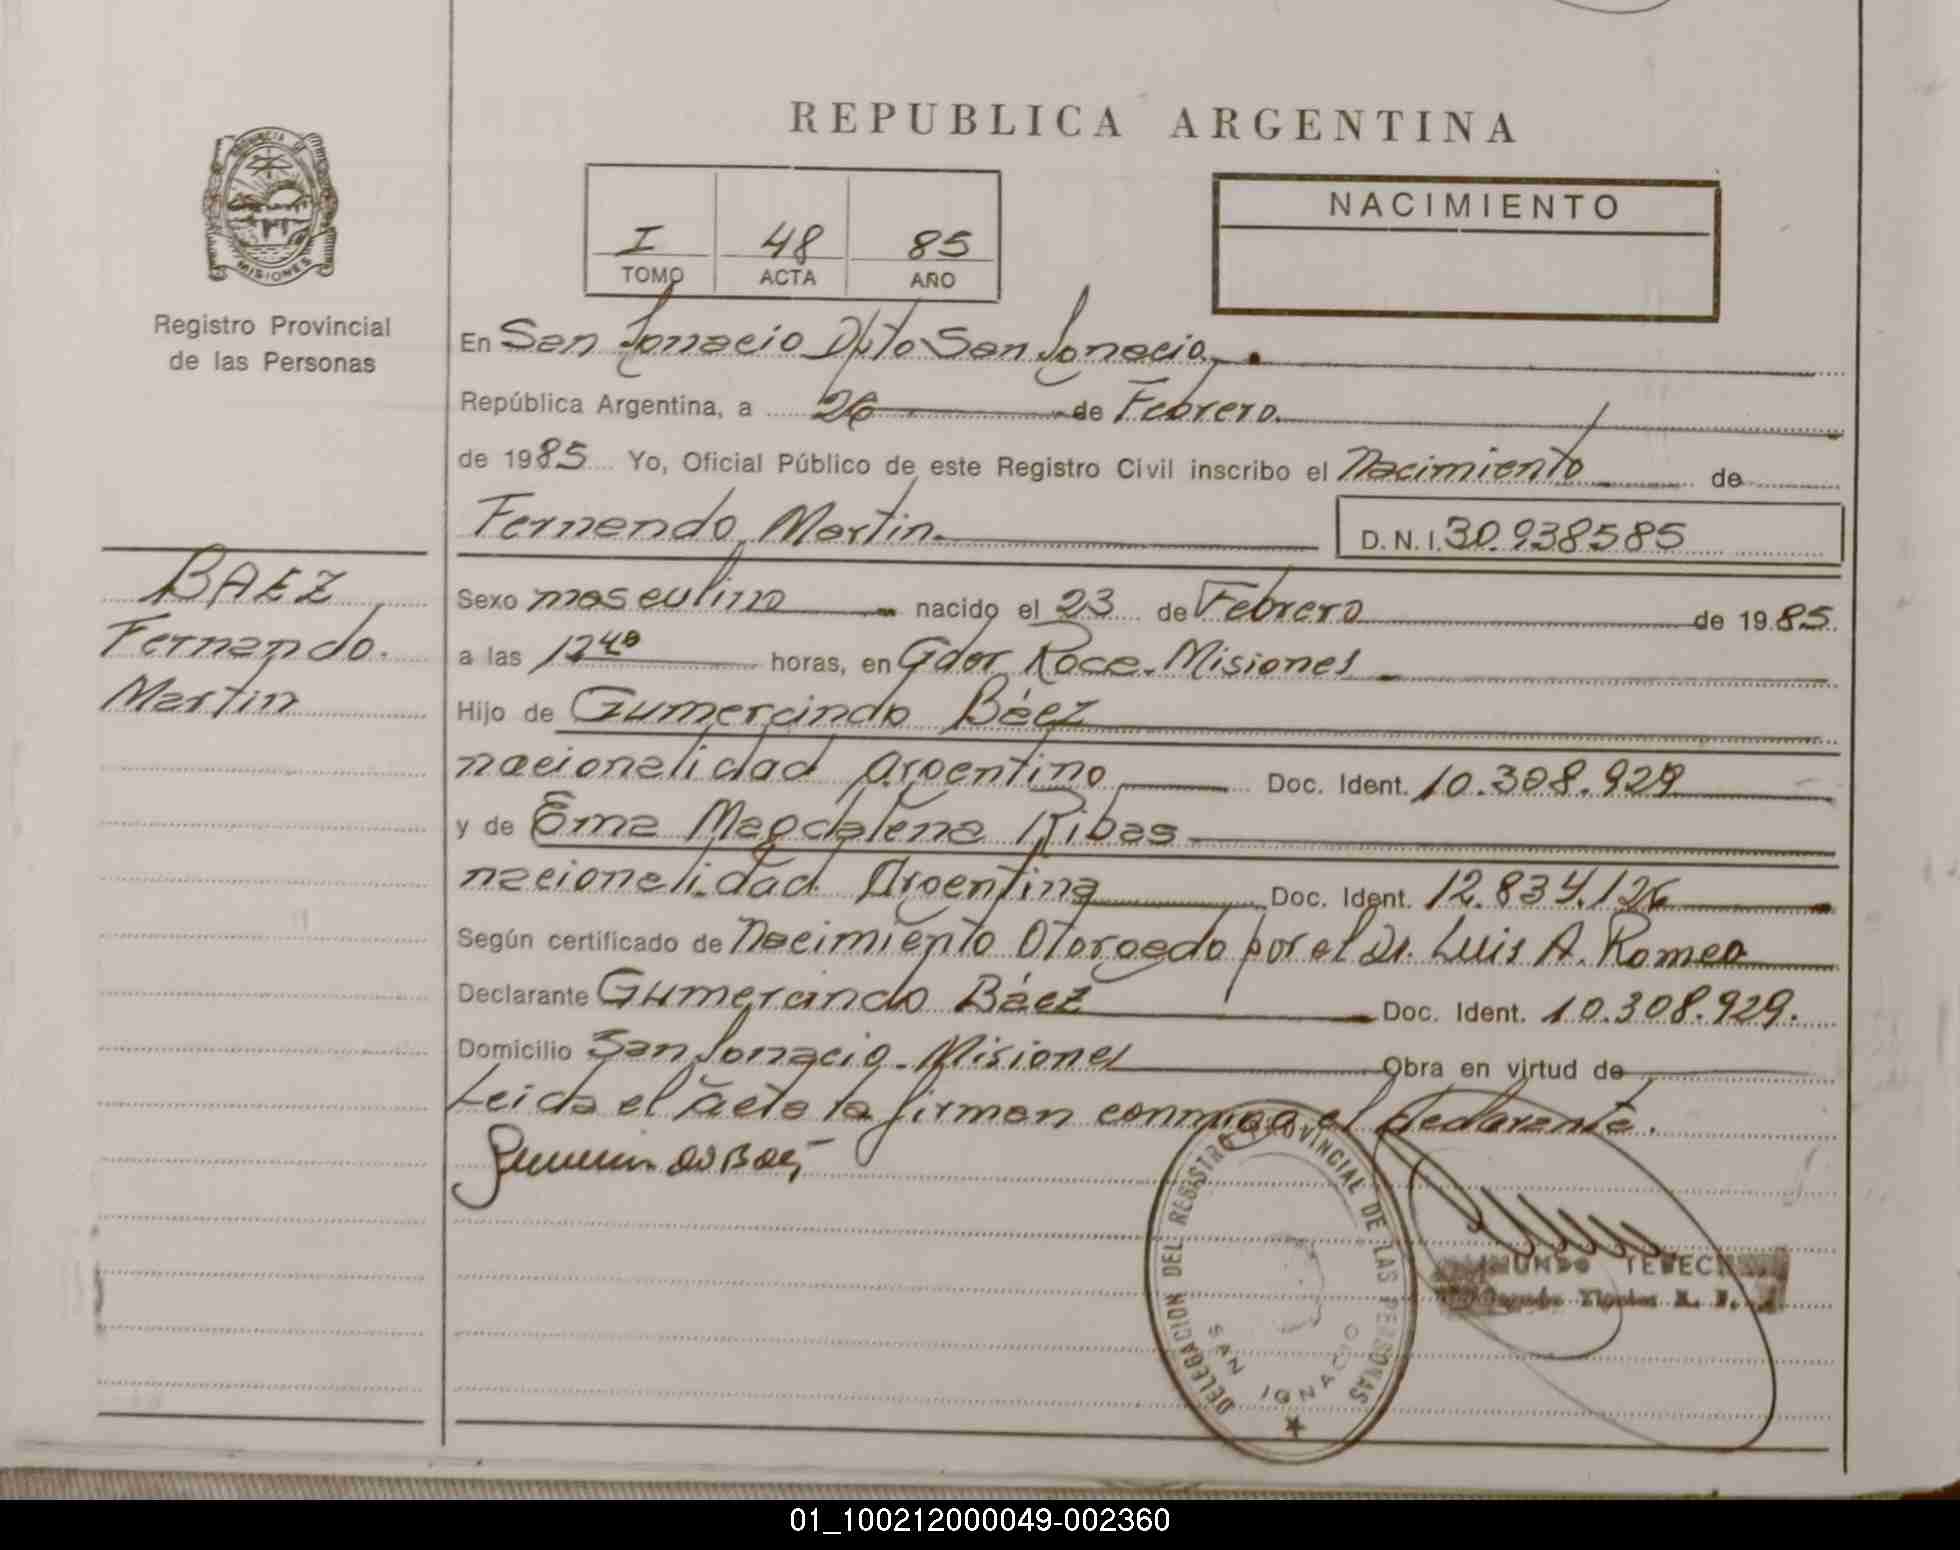 REPUBLICA ARGENTINA
PROVINCIA DE
MISIONES
Registro Provincial
de las Personas
I 48 85
TOMO ACTA AÑO
NACIMIENTO
En San Ignacio Dpto San Ignacio.
República Argentina, a 26 de Febrero
de 1985 Yo, Oficial Público de este Registro Civil inscribo el Nacimiento de
Fernando Martin D.N.I. 30.938585
BAEZ
Fernando
Martin
Sexo masculino nacido el 23 de Febrero de 1985.
a las 12 40 horas, en Gdor Roca - Misiones
Hijo de Gumercindo Báez
nacionalidad Argentino Doc. Ident. 10.308.929
y de Ema Magdalena Ribas
nacionalidad Argentina Doc. Ident. 12.834.126
Según certificado de Nacimiento Otorgado por el Dr. Luis A. Romeo
Declarante Gumercindo Báez Doc. Ident. 10.308.929.
Domicilio San Ignacio - Misiones Obra en virtud de
Leida el acta la firman conmigo el declarante.
DELEGACION DEL REGISTRO PROVINCIAL DE LAS PERSONAS
SAN IGNACIO
01_100212000049-002360